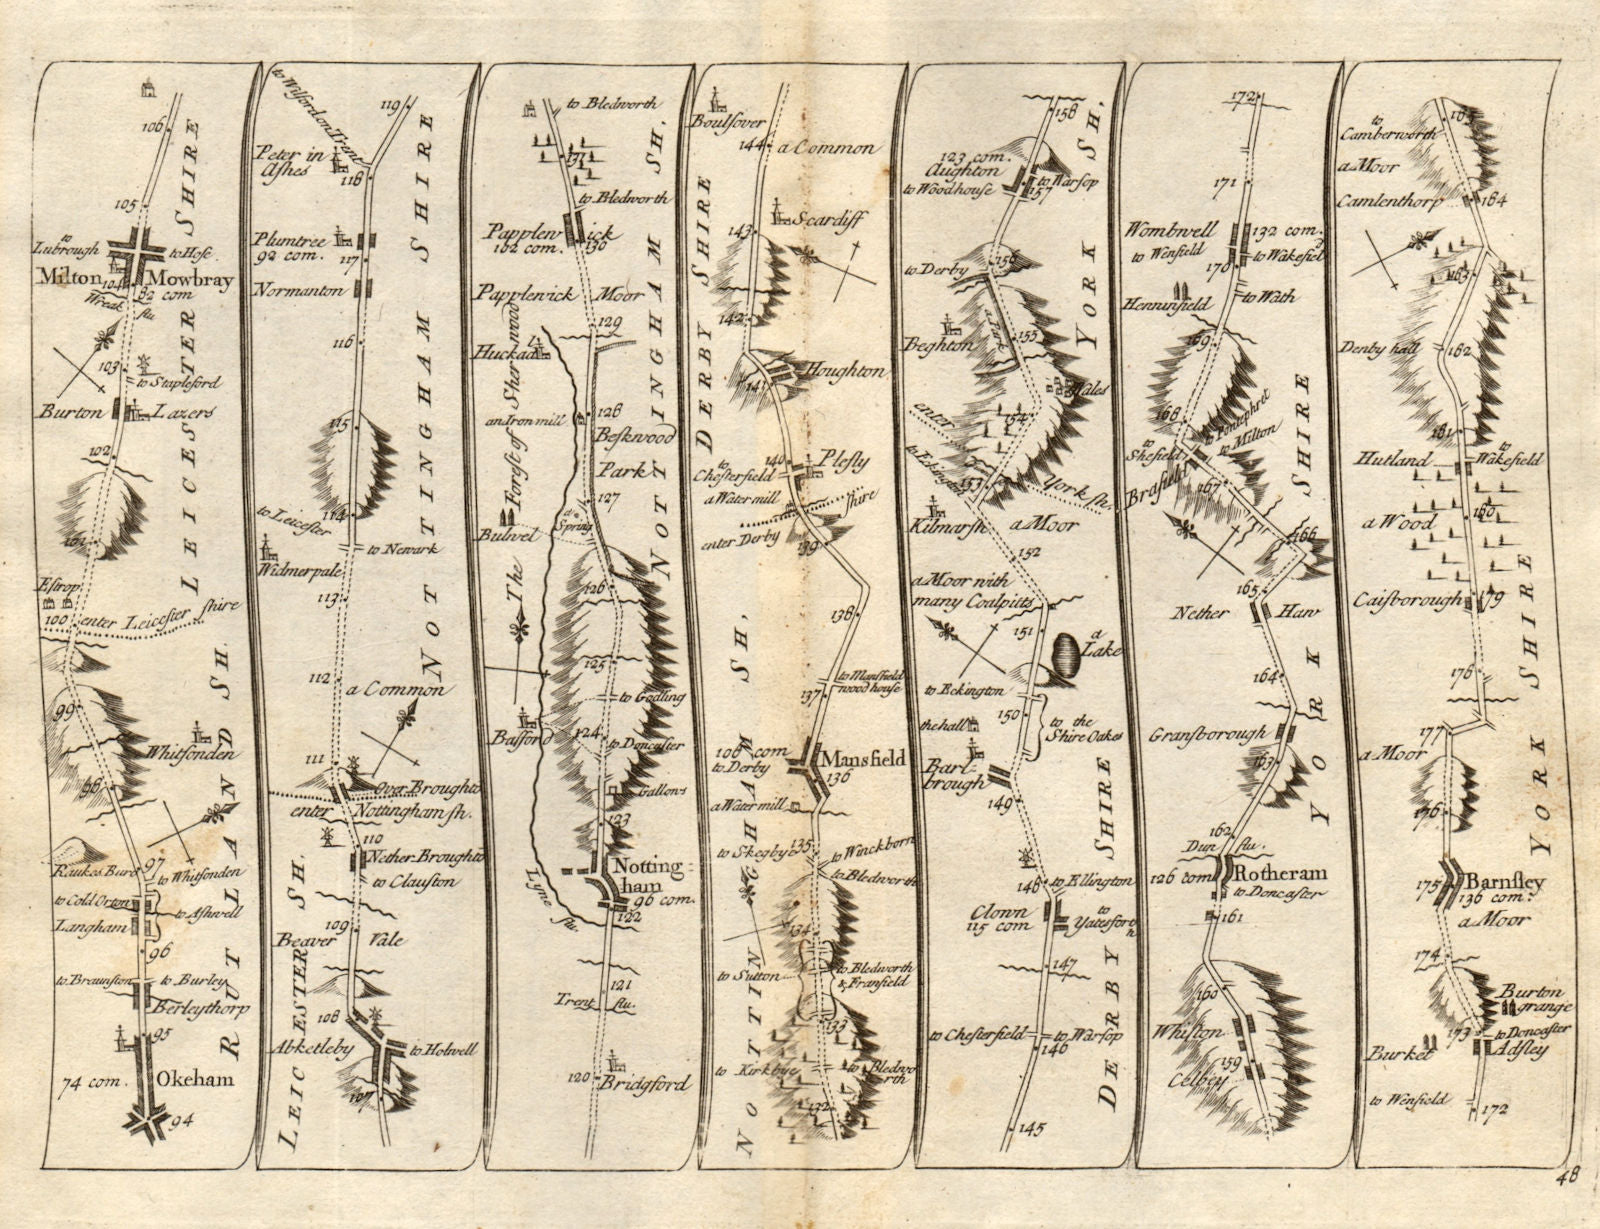 106
105
to Lubrough
to Hose
Milton Mowbray
104
82 com
Wreak flu
103
to Stapleford
Burton Lazers
102
101
Estrop
100
enter Leicester shire
99
Whitsonden
98
97
Raukes Burg
to Whitsonden
to Cold Orton
to Ashwell
Langham
96
to Braunston
to Burley
Berleythorp
95
74 com.
Okeham
94
LEICESTER SHIRE
RUTLAND SH.
to Wilford on Trent
119
Peter in Ashes
118
Plumtree
92 com.
117
Normanton
116
115
114
to Leicester
to Newark
Widmerpale
113
112
a Common
111
Over Broughto
enter Nottingham sh.
110
Nether Broughto
to Clauston
109
Beaver Vale
108
Abketleby
to Holwell
107
NOTTINGHAM SHIRE
LEICESTER SH.
to Bledworth
131
to Bledworth
Papplewick
102 com.
130
Papplewick Moor
129
Huckad
an Iron mill
128
Beskwood Park
127
a Spring
Bulwel
126
125
to Godling
Basford
124
to Doncaster
Gallows
123
Nottingham
96 com.
122
Lyne flu.
121
Trent flu.
120
Bridgford
The Forest of Sherwood
NOTTINGHAM SH.
Boulsover
144
a Common
Scardiff
143
142
141
Houghton
140
to Chesterfield
Plesly
a Water mill
enter Derby shire
139
138
to Mansfield wood house
137
106 com
to Derby
Mansfield
136
a Water mill
to Skegby
135
to Winckborn
to Bledworth
134
to Sutton
to Bledworth & Fransfield
133
to Kirkbye
to Bledwo rth
132
DERBY SHIRE
NOTTINGHAM SH,
158
123 com.
Aughton
to Woodhouse
to Warsop
157
156
to Derby
a Park
155
Beghton
Wales
154
enter York sh.
to Eckington
153
Kilmarsh
a Moor
152
a Moor with many Coalpitts
151
a Lake
to Eckington
150
the hall
to the Shire Oakes
Barlbrough
149
148
to Ellington
Clown
115 com
to Yatesford
147
to Chesterfield
to Warsop
146
145
YORK SH.
DERBY SHIRE
172
171
Wombwell
132 com.
to Wenfield
to Wakefiel
170
Henninfield
to Wath
169
168
to Pontephret
to Milton
to Shefield
Brafield
167
166
165
Nether Haw
164
Gransborough
163
162
Dun flu.
126 com
Rotheram
to Doncaster
161
160
Whiston
159
Celbey
YORK SHIRE
165
to Camberworth
a Moor
Camlenthorp
164
163
Denby hall
162
161
Hutland
to Wakefield
a Wood
160
Caisborough
179
178
177
a Moor
176
175
Barnsley
136 com.
a Moor
174
Burton grange
173
to Doncaster
Burket
Adsley
to Wenfield
172
YORK SHIRE
48